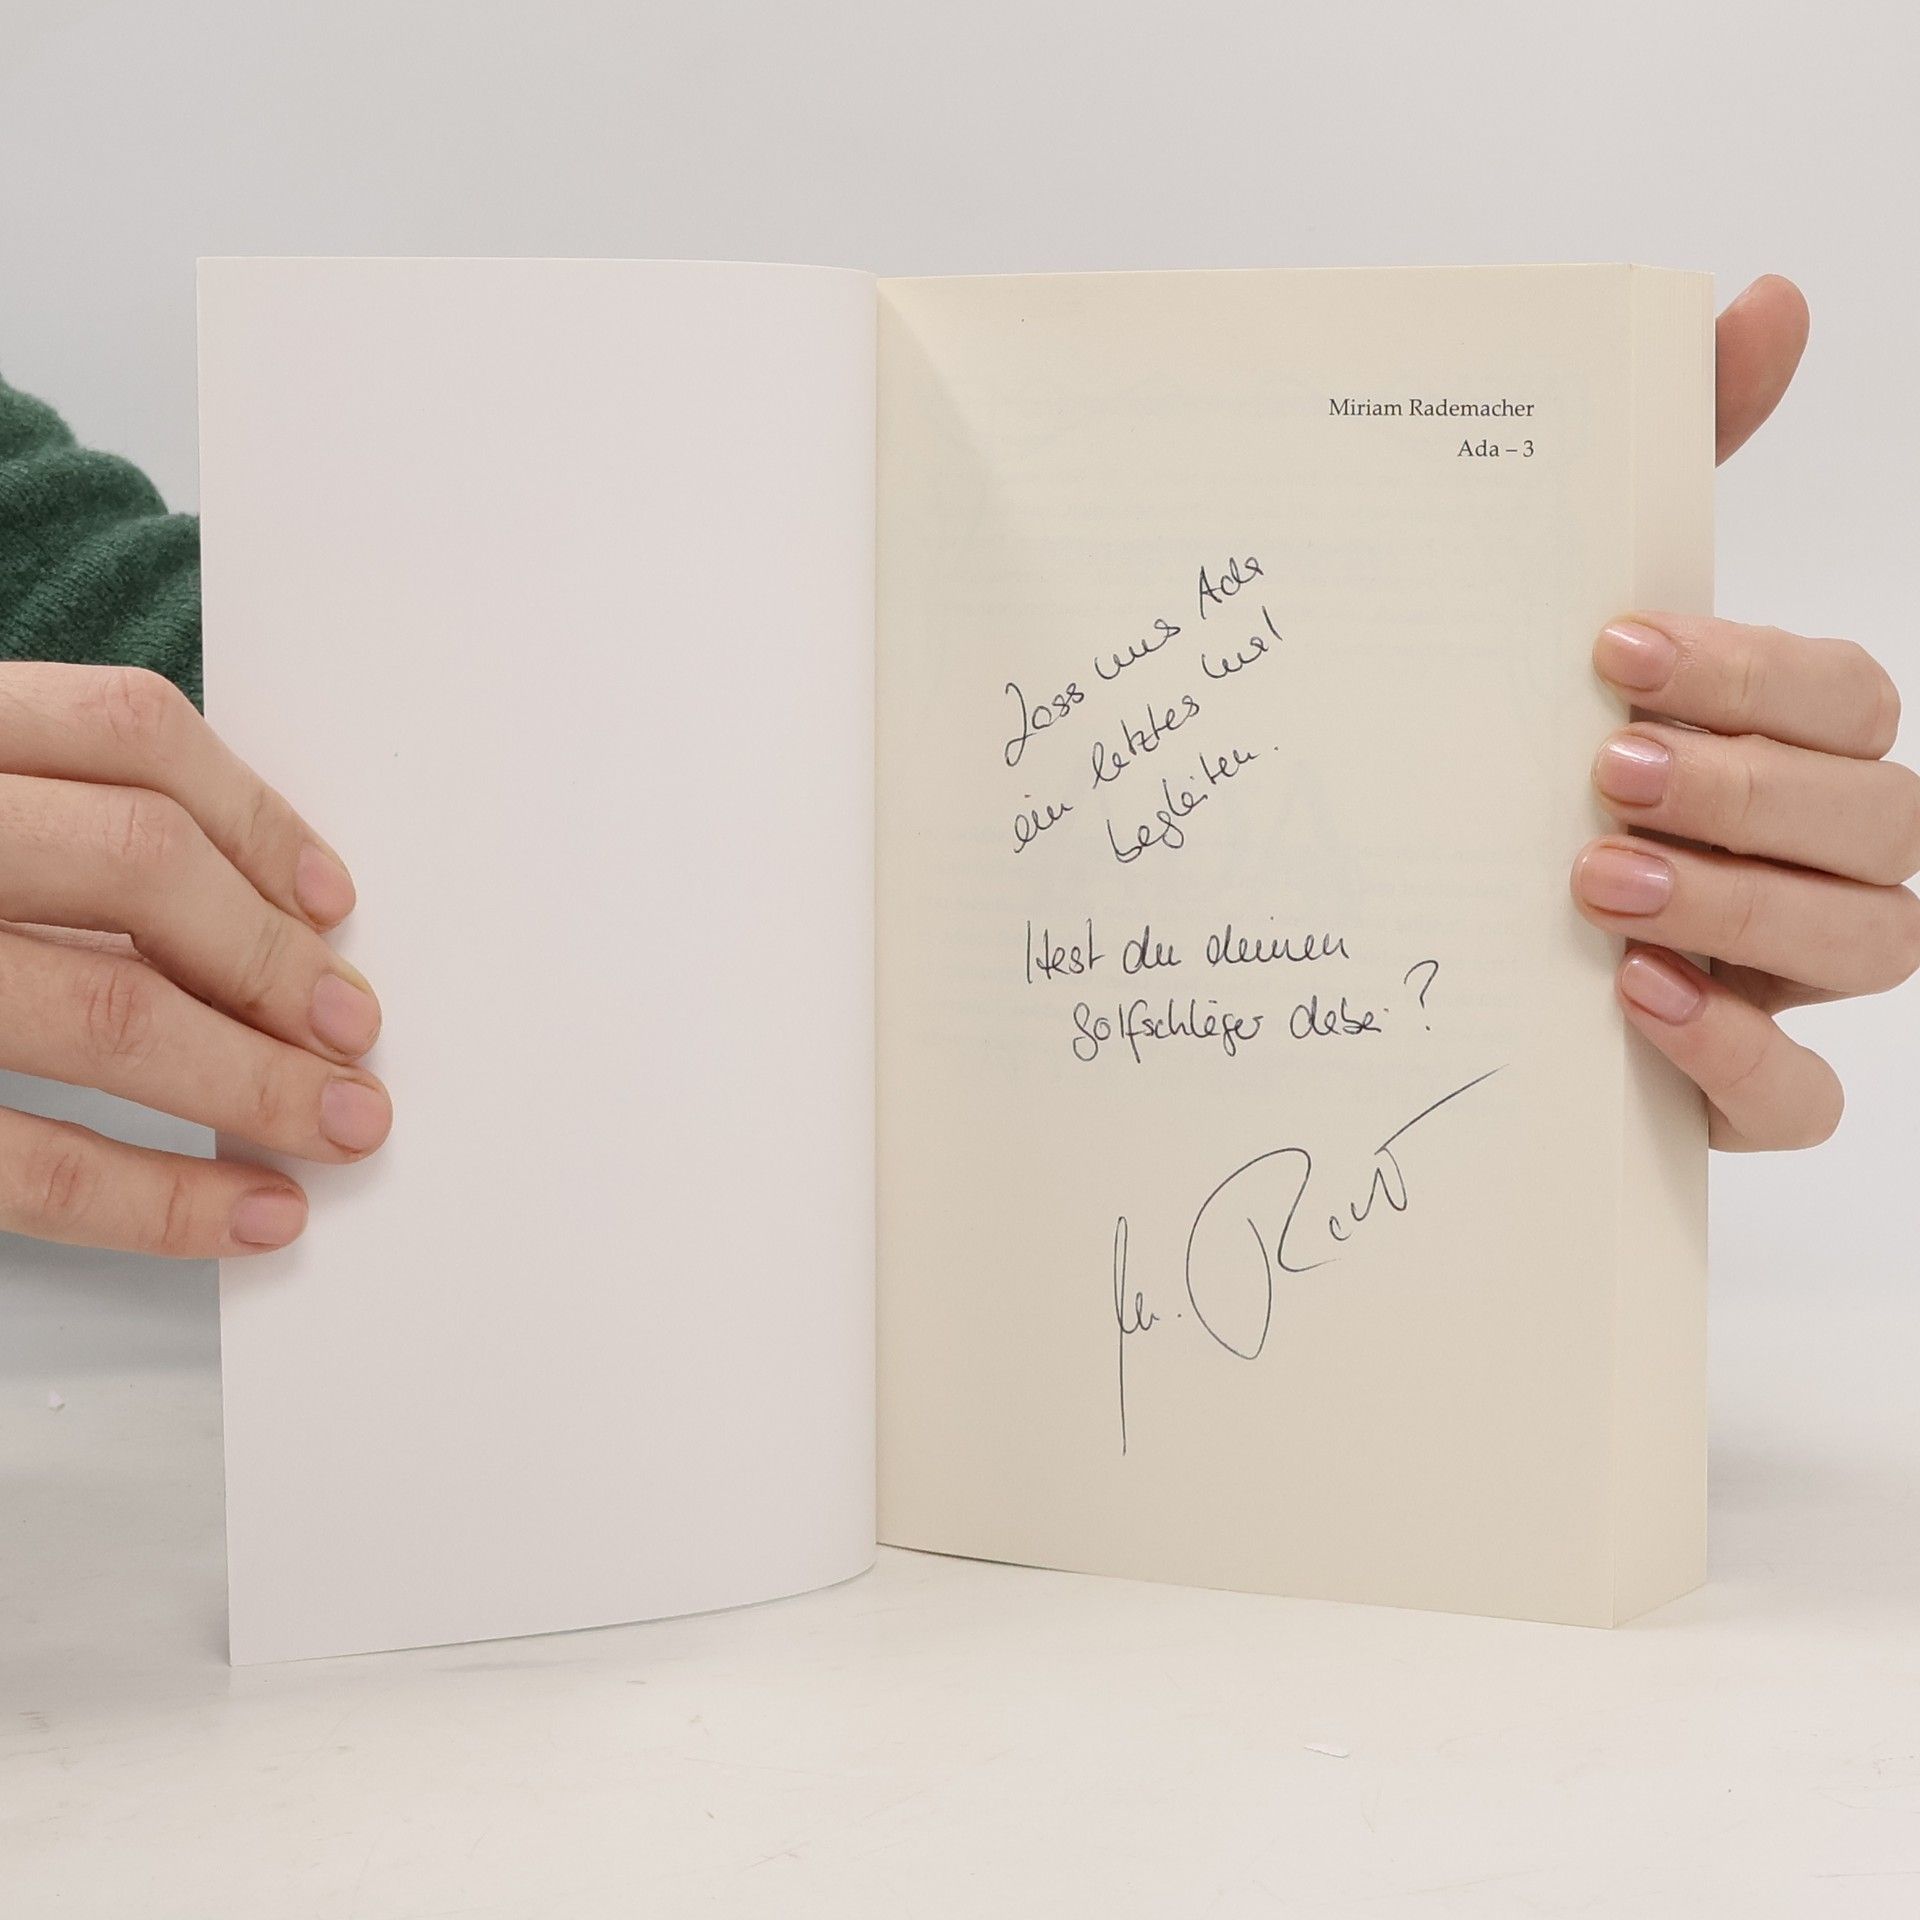 Miriam Rademacher
Ada – 3
Lass uns Ada
ein letztes mal
begleiten.
Hast du deinen
Golfschläger dabei?